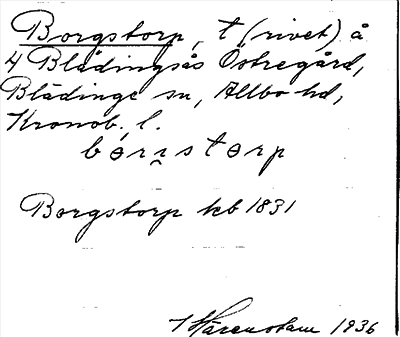 Borgstorp, t (rivet) å
4 Blädingsås Östregård,
Blädinge sn, Allbo hd,
Kronob. l.
bɵrı̰stɵrp
Borgstorp kb 1831
Härenstam 1936